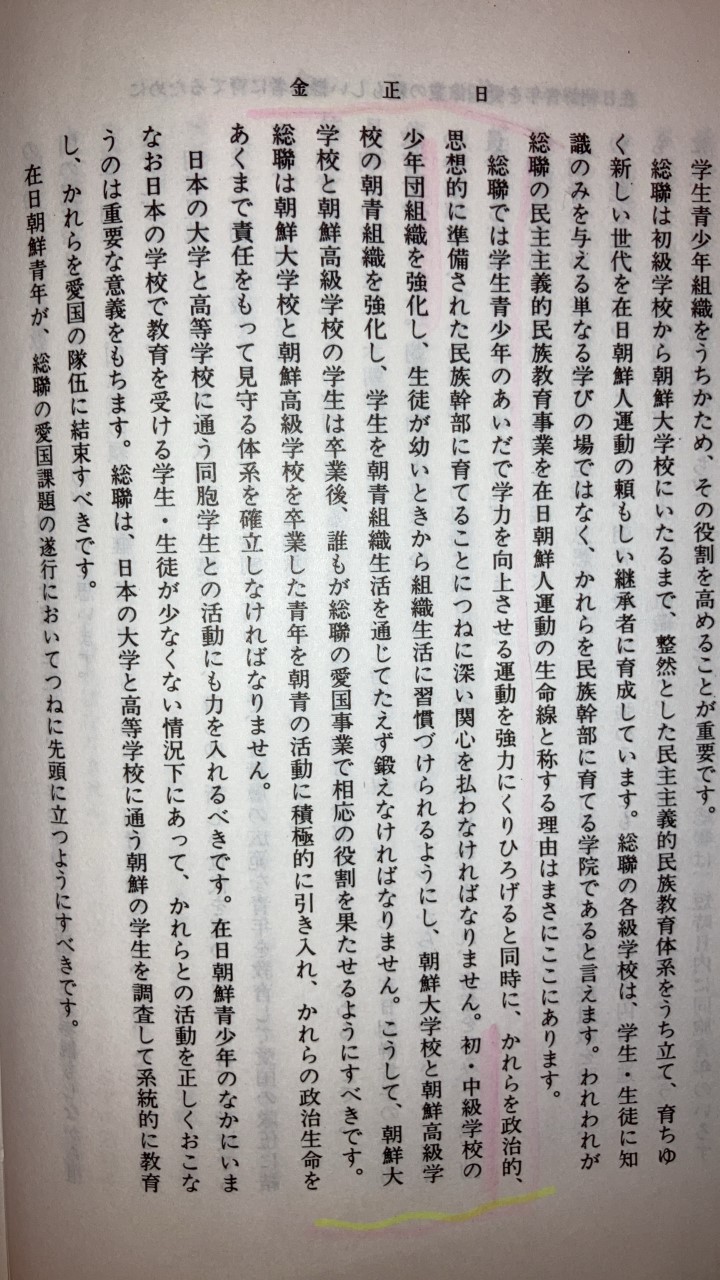 金正日
学生青少年組織をうちかため、その役割を高めることが重要です。
総聯は初級学校から朝鮮大学校にいたるまで、整然とした民主主義的民族教育体系をうち立て、育ちゆ
く新しい世代を在日朝鮮人運動の頼もしい継承者に育成しています。総聯の各級学校は、学生・生徒に知
識のみを与える単なる学びの場ではなく、かれらを民族幹部に育てる学院であると言えます。われわれが
総聯の民主主義的民族教育事業を在日朝鮮人運動の生命線と称する理由はまさにここにあります。
総聯では学生青少年のあいだで学力を向上させる運動を強力にくりひろげると同時に、かれらを政治的、
思想的に準備された民族幹部に育てることにつねに深い関心を払わなければなりません。初・中級学校の
少年団組織を強化し、生徒が幼いときから組織生活に習慣づけられるようにし、朝鮮大学校と朝鮮高級学
校の朝青組織を強化し、学生を朝青組織生活を通じてたえず鍛えなければなりません。こうして、朝鮮大
学校と朝鮮高級学校の学生は卒業後、誰もが総聯の愛国事業で相応の役割を果たせるようにすべきです。
総聯は朝鮮大学校と朝鮮高級学校を卒業した青年を朝青の活動に積極的に引き入れ、かれらの政治生命を
あくまで責任をもって見守る体系を確立しなければなりません。
日本の大学と高等学校に通う同胞学生との活動にも力を入れるべきです。在日朝鮮青少年のなかにいま
なお日本の学校で教育を受ける学生・生徒が少なくない情況下にあって、かれらとの活動を正しくおこな
うのは重要な意義をもちます。総聯は、日本の大学と高等学校に通う朝鮮の学生を調査して系統的に教育
し、かれらを愛国の隊伍に結束すべきです。
在日朝鮮青年が、総聯の愛国課題の遂行においてつねに先頭に立つようにすべきです。